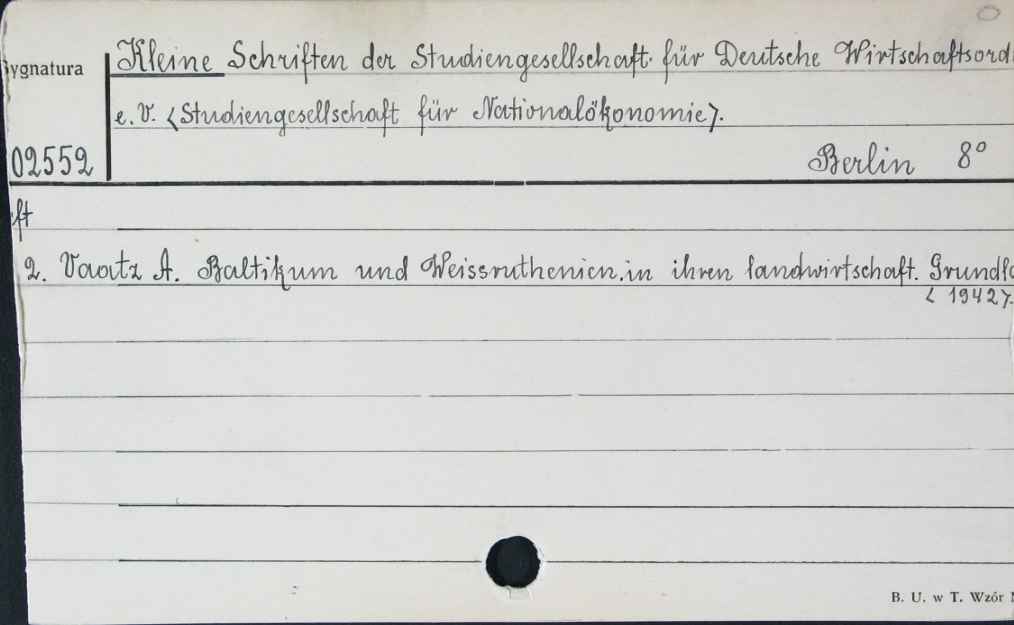 ygnatura
Kleine Schriften der Studiengesellschaft für Deutsche Wirtschaftsord
e. V. <Studiengesellschaft für Nationalökonomie>.
02552
Berlin 8°
ft
2. Vaatz A. Baltikum und Weissruthenien in ihren landwirtschaft. Grundla
< 1942>.
B. U. w T. Wzór